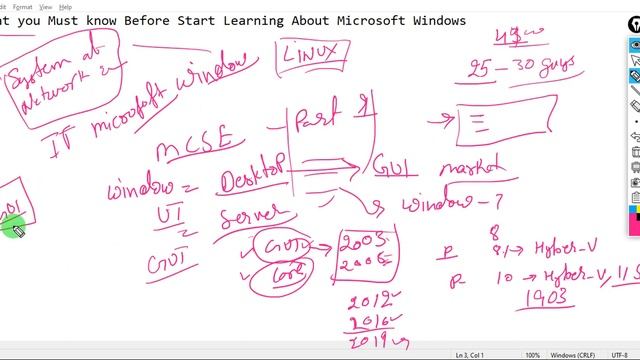 Format View Help
nt you Must know Before Start Learning About Microsoft Windows
System at
Network
LINUX
25 - 30 guys
IT microsoft window
MCSE
Part
window = Desktop
GUI market
UI
Server
window - 7
GUI
GUI
GUI
Core
2003
8
P 8.1 → Hyber-V
P 10 → Hyber-V,
1903
2012
2016
2019
Ln 3, Col 1 100% Windows (CRLF) UTF-8